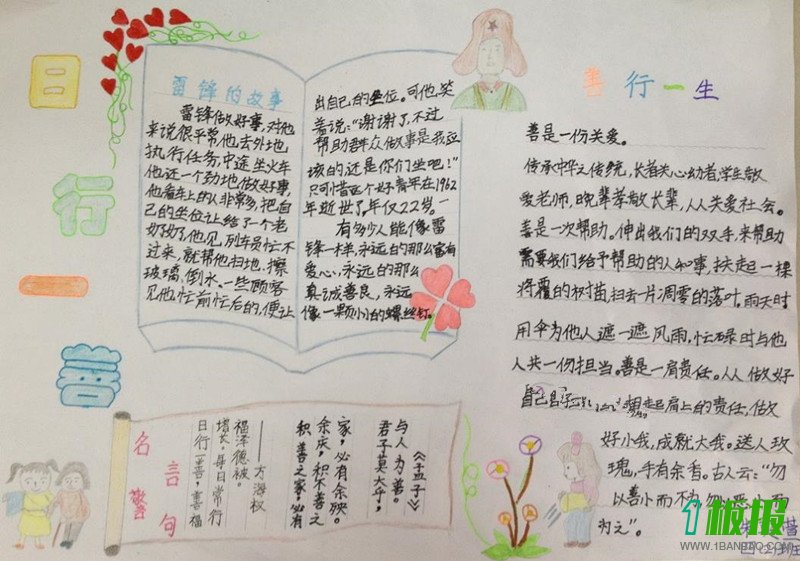 日
行
一
善
雷锋的故事
雷锋做好事,对他
来说很平常他去外地
执行任务,中途坐火车
他还一个劲地做好事,
他看车上的人非常多,把自
己的坐位让给了一个老
奶奶,他见列车员忙不
过来,就帮他扫地.擦
玻璃,倒水。一些顾客
见他忙前忙后的,便让
出自己的坐位。可他笑
着说:“谢谢了,不过
帮助群众做事是我应
该的,还是你们坐吧!”
只可惜这个好青年在1962
年逝世了,年仅22岁。
有多少人能像雷
锋一样,永远的那么富有
爱心,永远的那么
真诚善良,永远
像一颗小小的螺丝钉
善行一生
善是一份关爱。
传承中华之传统,长者关心幼者,学生敬
爱老师,晚辈孝敬长辈,人人关爱社会。
善是一次帮助。伸出我们的双手,来帮助
需要我们给予帮助的人和事,扶起一棵
将覆的树苗,扫去一片凋零的落叶。雨天时
用伞为他人遮一遮风雨,忙碌时与他
人共一份担当。善是一肩责任。人人做好
自己 起肩上的责任,做
好小我,成就大我。送人玫
瑰,手有余香。古人云:“勿
以善小而不为,勿以恶小而
为之”。
名言
警句
《孟子》
与人为善。
君子莫大乎,
家,必有余殃。
余庆,积不善之
积善之家,必有
——方海权
福泽德被。
增长,每日常行
日行一善,善福
板报
WWW.1BANBAO.COM
班